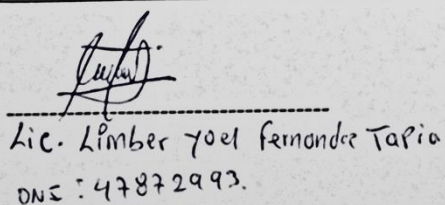 Lic. Limber yoel Fernandez Tapia
DNI : 47872993.